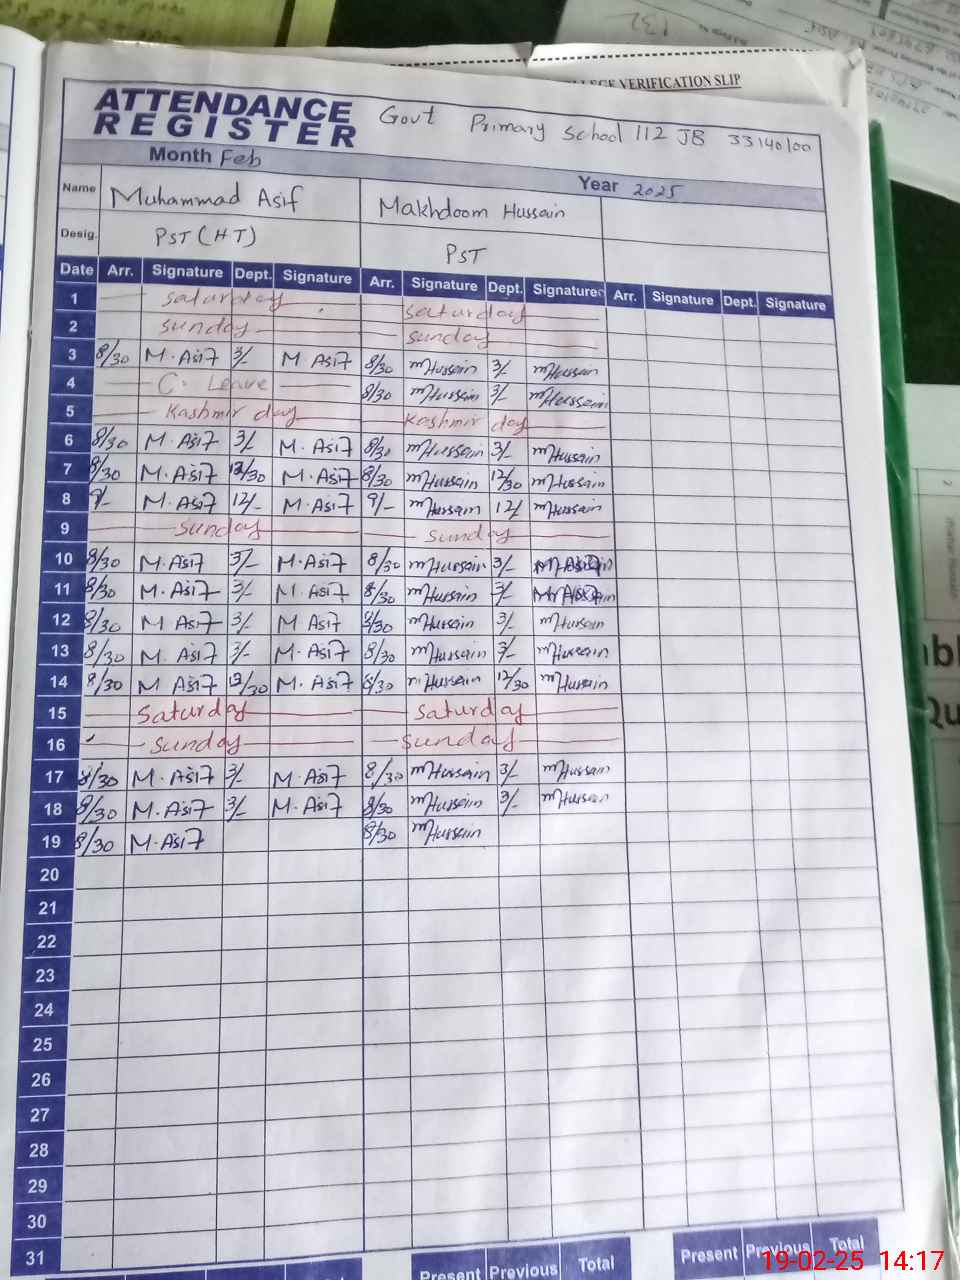 VERIFICATION SLIP
ATTENDANCE
REGISTER
Govt Primary School 112 JB 33140100
Month Feb
Year 2025
Name Muhammad Asif Makhdoom Hussain
Desig. PST (HT) PST
Date Arr. Signature Dept. Signature Arr. Signature Dept. Signature Arr. Signature Dept. Signature
1 Saturday Saturday
2 Sunday Sunday
3 8/30 M.Asif 3/- M.Asif 8/30 mHussain 3/- mHussain
4 C. Leave 8/30 mHussain 3/- mHussain
5 Kashmir day Kashmir day
6 8/30 M.Asif 3/- M.Asif 8/30 mHussain 3/- mHussain
7 8/30 M.Asif 12/30 M.Asif 8/30 mHussain 12/30 mHussain
8 9/- M.Asif 12/- M.Asif 9/- mHussain 12/ mHussain
9 Sunday Sunday
10 8/30 M.Asif 3/- M.Asif 8/30 mHussain 3/-
11 8/30 M.Asif 3/- M.Asif 8/30 mHussain 3/-
12 8/30 M.Asif 3/- M Asif 8/30 mHussain 3/- mHussain
13 8/30 M.Asif 3/- M.Asif 8/30 mHussain 3/- mHussain
14 8/30 M Asif 12/30 M.Asif 8/30 mHussain 12/30 mHussain
15 Saturday Saturday
16 Sunday Sunday
17 8/30 M.Asif 3/- M.Asif 8/30 mHussain 3/- mHussain
18 8/30 M.Asif 3/- M.Asif 8/30 mHussain 3/- mHussain
19 8/30 M.Asif 8/30 mHussain
20
21
22
23
24
25
26
27
28
29
30
31
Present Previous Total Present Previous Total
19-02-25 14:17